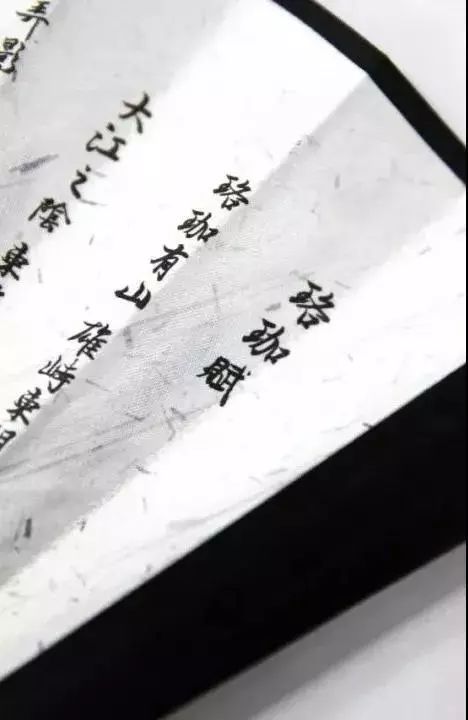 珞珈賦
珞珈有山 雄峙東
大江之陰 東
弄影